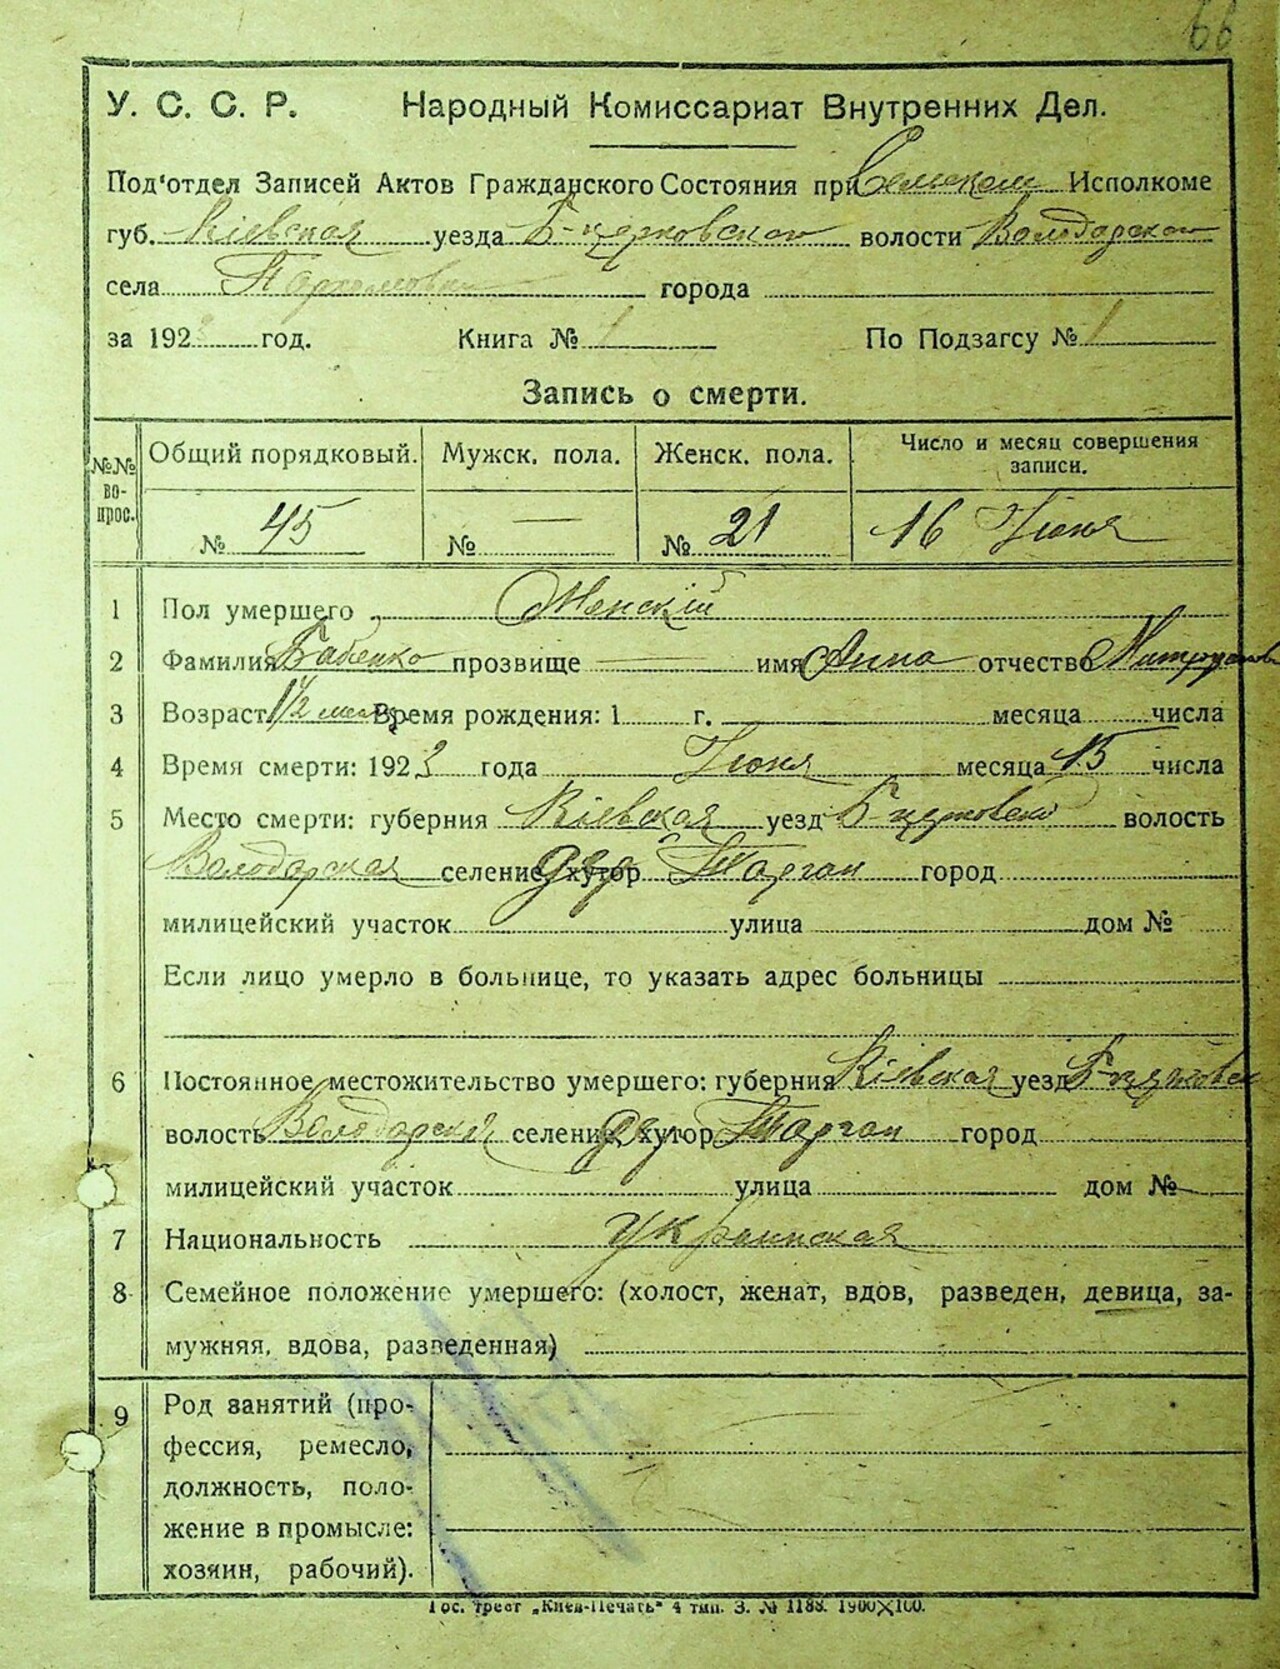 66
У. С. С. Р. Народный Комиссариат Внутренних Дел.
Под'отдел Записей Актов Гражданского Состояния при Сельском Исполкоме
губ. Кіевская уезда Б-церковского волости Володарской
села Пархомовки города
за 1923 год. Книга № 1 По Подзагсу № 1
Запись о смерти.
№№ во-прос. Общий порядковый. Мужск. пола. Женск. пола. Число и месяц совершения записи.
№ 45 № — № 21 16 Июня
1 Пол умершего Женскій
2 Фамилия Бабенко прозвище — имя Анна отчество
3 Возраст 1½ мес. Время рождения: 1 г. месяца числа
4 Время смерти: 1923 года Июня месяца 15 числа
5 Место смерти: губерния Кіевская уезд Б-церковский волость
Володарская селение, хутор дер Тарган город
милицейский участок улица дом №
Если лицо умерло в больнице, то указать адрес больницы
6 Постоянное местожительство умершего: губерния Кіевская уезд Б-церковск
волость Володарская селение, хутор дер Тарган город
милицейский участок улица дом №
7 Национальность Украинская
8 Семейное положение умершего: (холост, женат, вдов, разведен, девица, за-
мужняя, вдова, разведенная)
9 Род занятий (про-
фессия, ремесло,
должность, поло-
жение в промысле:
хозяин, рабочий).
Гос. трест „Киев-Печать" 4 тип. З. № 1188. 1900×100.